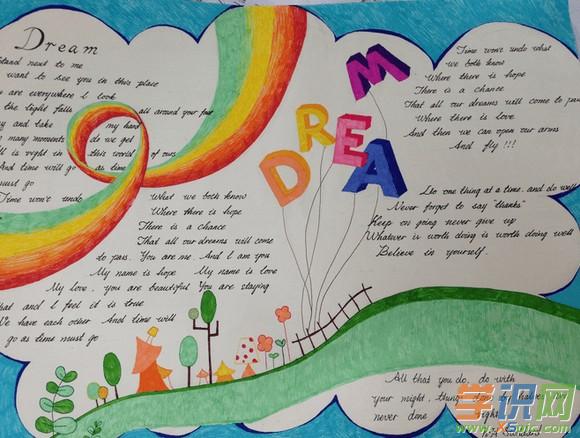 Dream
stand next to me
want to see you in this place
are everywhere I look
the light falls all around your face
and take my hand
many moments do we get
all is right in this world of ours
And time will go as time
must go
Time won't undo what we both know
Where there is hope
There is a chance
That all our dreams will come
to pass. You are me. And I am you
My name is hope My name is love
My love, you are beautiful You are staying
that and I feel it is true
We have each other And time will
go as time must go
DREAM
Time won't undo what
we both know
Where there is hope
There is a chance
That all our dreams will come to pass
Where there is love
And then we can open our arms
And fly!!!
Do one thing at a time, and do well
Never forget to say "thanks"
Keep on going never give up
Whatever is worth doing is worth doing well
Believe in yourself.
All that you do, do with
your might, things done by halves are
never done right
学识网
www.xspic.com